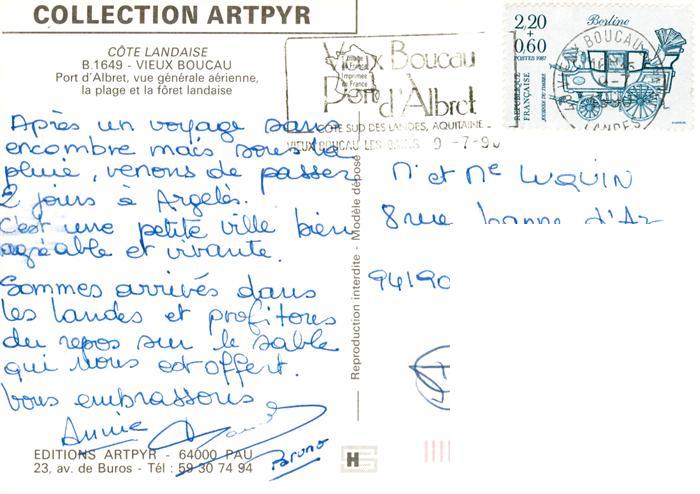 COLLECTION ARTPYR
CÔTE LANDAISE
B.1649 - VIEUX BOUCAU
Port d'Albret, vue générale aérienne,
la plage et la fôret landaise
Après un voyage sans
encombre mais sous la
pluie, venons de passer
2 jours à Argelès.
C'est une petite ville bien
agréable et vivante.
Sommes arrivés dans
les landes et profitons
du repos sur le sable
qui nous est offert.
Vous embrassons
Annie
Bruno
EDITIONS ARTPYR - 64000 PAU
23, av. de Buros - Tél : 59 30 74 94
Reproduction interdite - Modèle déposé
Imprimée
de France
Vieux Boucau
Port d'Albret
CÔTE SUD DES LANDES, AQUITAINE
VIEUX BOUCAU LES BAINS 9-7-90
2,20
+
0,60
Berline
POSTES 1987
REPUBLIQUE FRANÇAISE
JOURNÉE DU TIMBRE
VIEUX BOUCAU
LANDES
Mr et Me LUQUIN
8 rue
94190
H